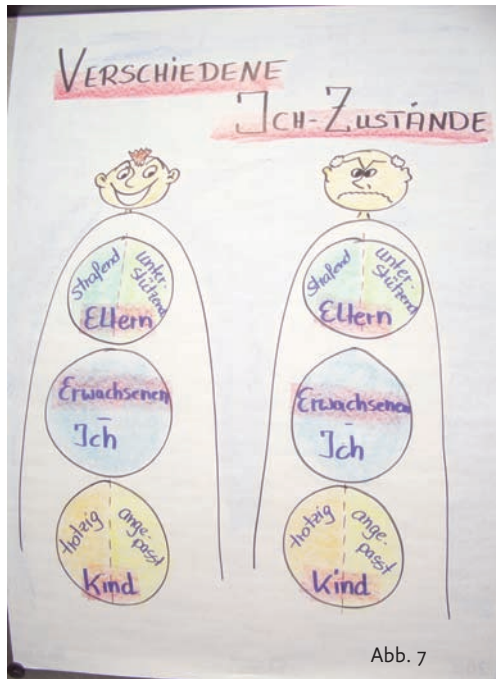 VERSCHIEDENE
ICH-ZUSTÄNDE
strafend
unter-
stützend
Eltern
Erwachsenen
-
Ich
trotzig
ange-
passt
Kind
strafend
unter-
stützend
Eltern
Erwachsenen
-
Ich
trotzig
ange-
passt
Kind
Abb. 7